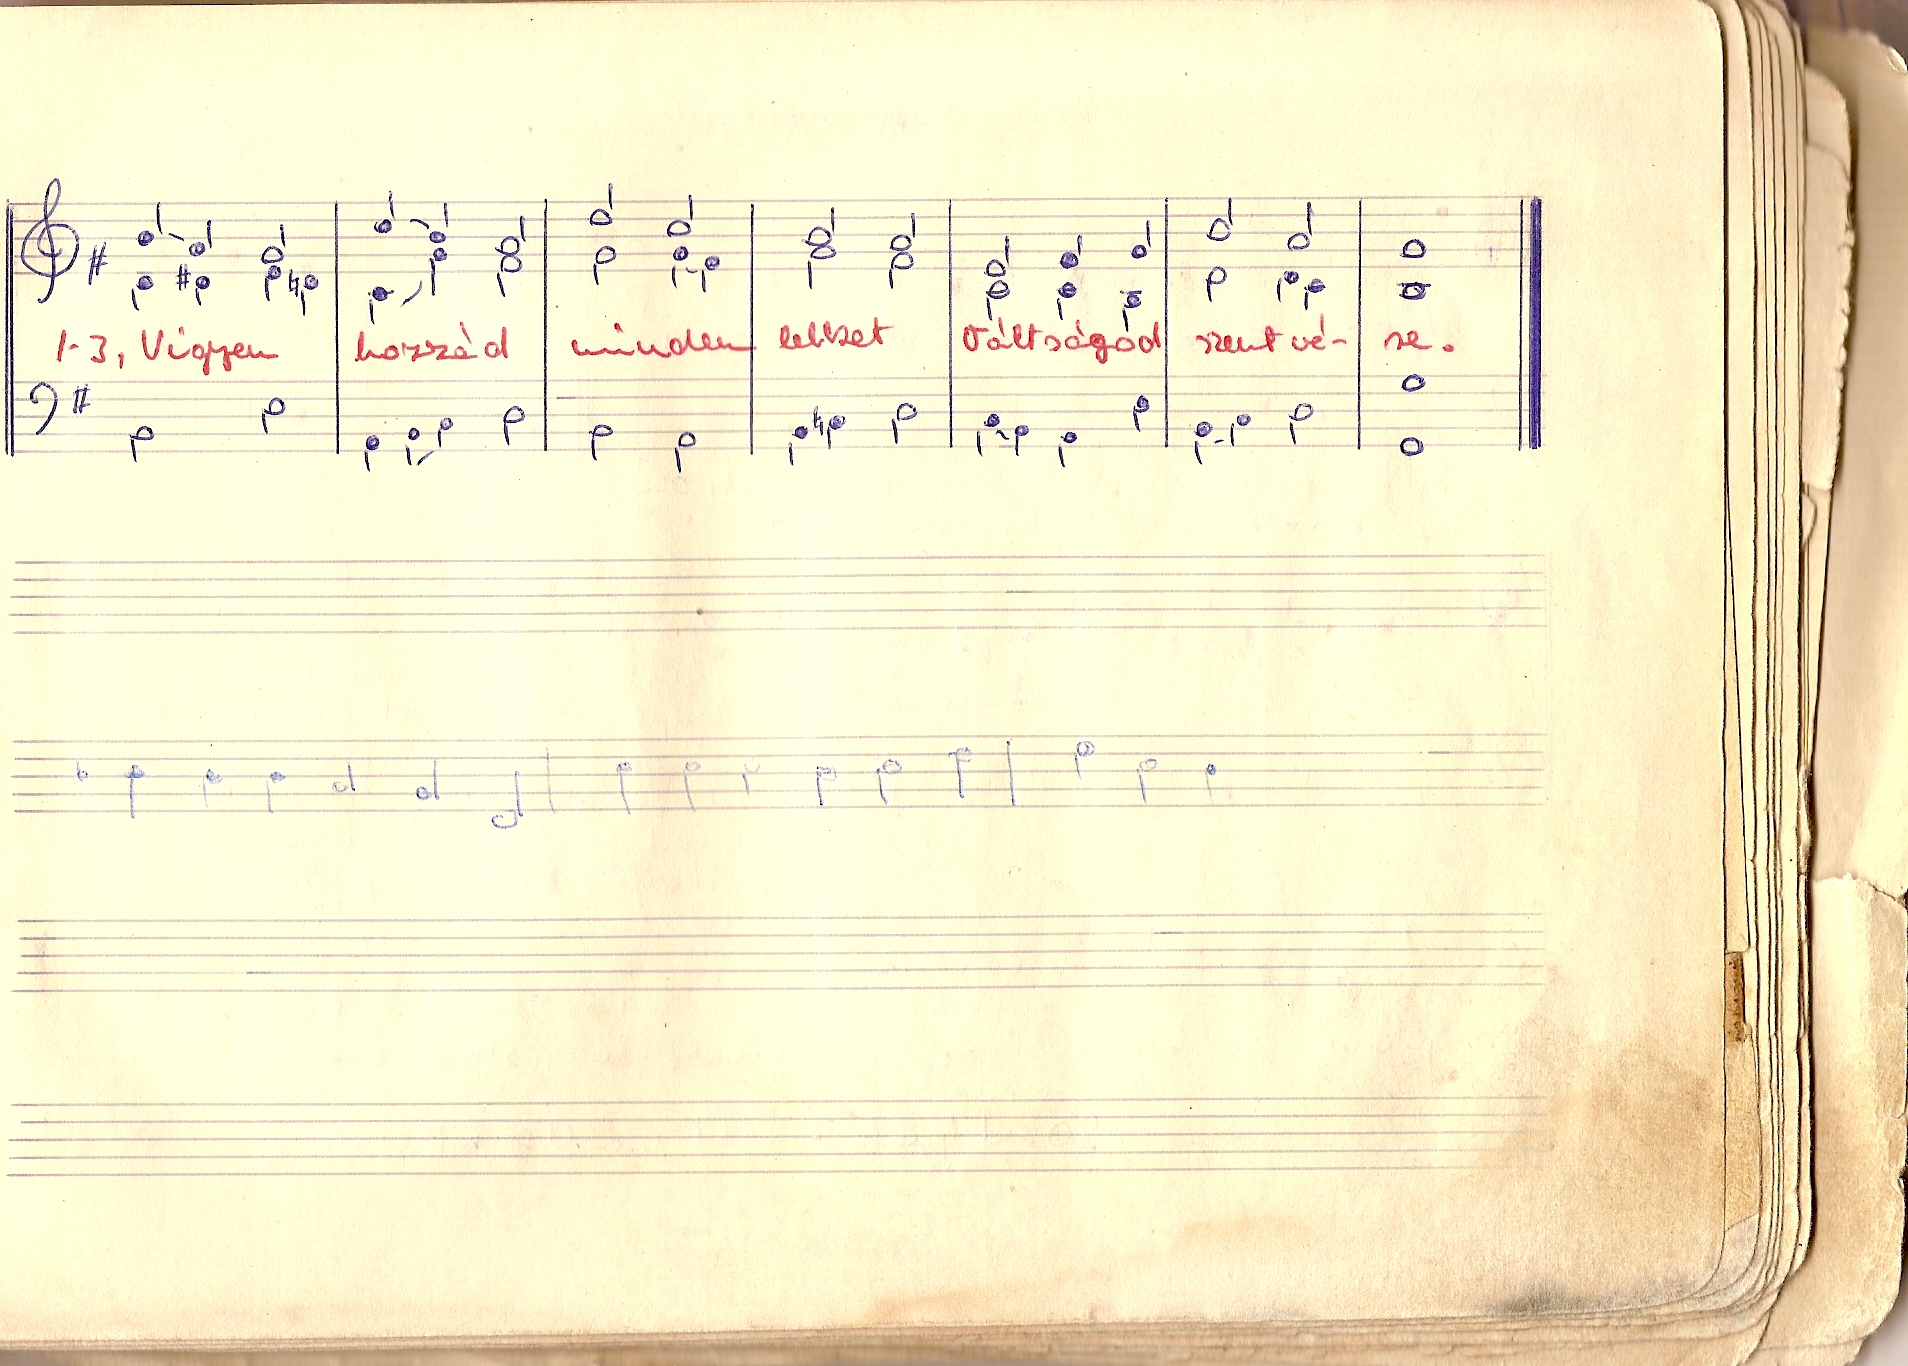 1-3, Vigyen hozzád minden lelket Váltságod szent vé- re.